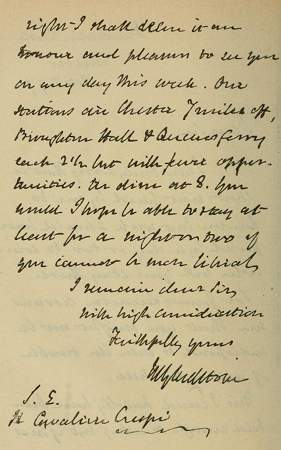 right I shall deem it an
honour and pleasure to see you
on any day this week. Our
stations are Chester
Broughton Hall & Queensferry
each 2½ but with fewer oppor-
tunities. We dine at 8. You
would I hope be able to stay at
least for a night or two if
you cannot be more liberal
I remain dear Sir
with high consideration
Faithfully yours
WEGladstone
S. E.
Il Cavaliere Crespi